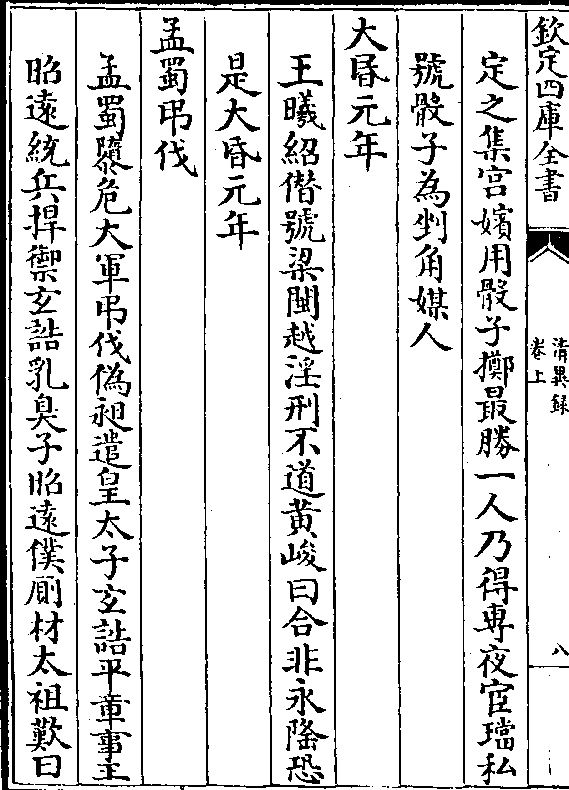 欽定四庫全書
清異録
卷上
八
定之集宫嬪用骰子擲最勝一人乃得專夜宦璫私
號骰子為剉角媒人
大昏元年
王曦紹僭號梁閩越淫刑不道黄峻曰合非永隆恐
是大昏元年
孟蜀弔伐
孟蜀隳危大軍弔伐偽昶遣皇太子玄喆平章事王
昭遠統兵捍禦玄喆乳臭子昭遠僕厠材太祖歎曰